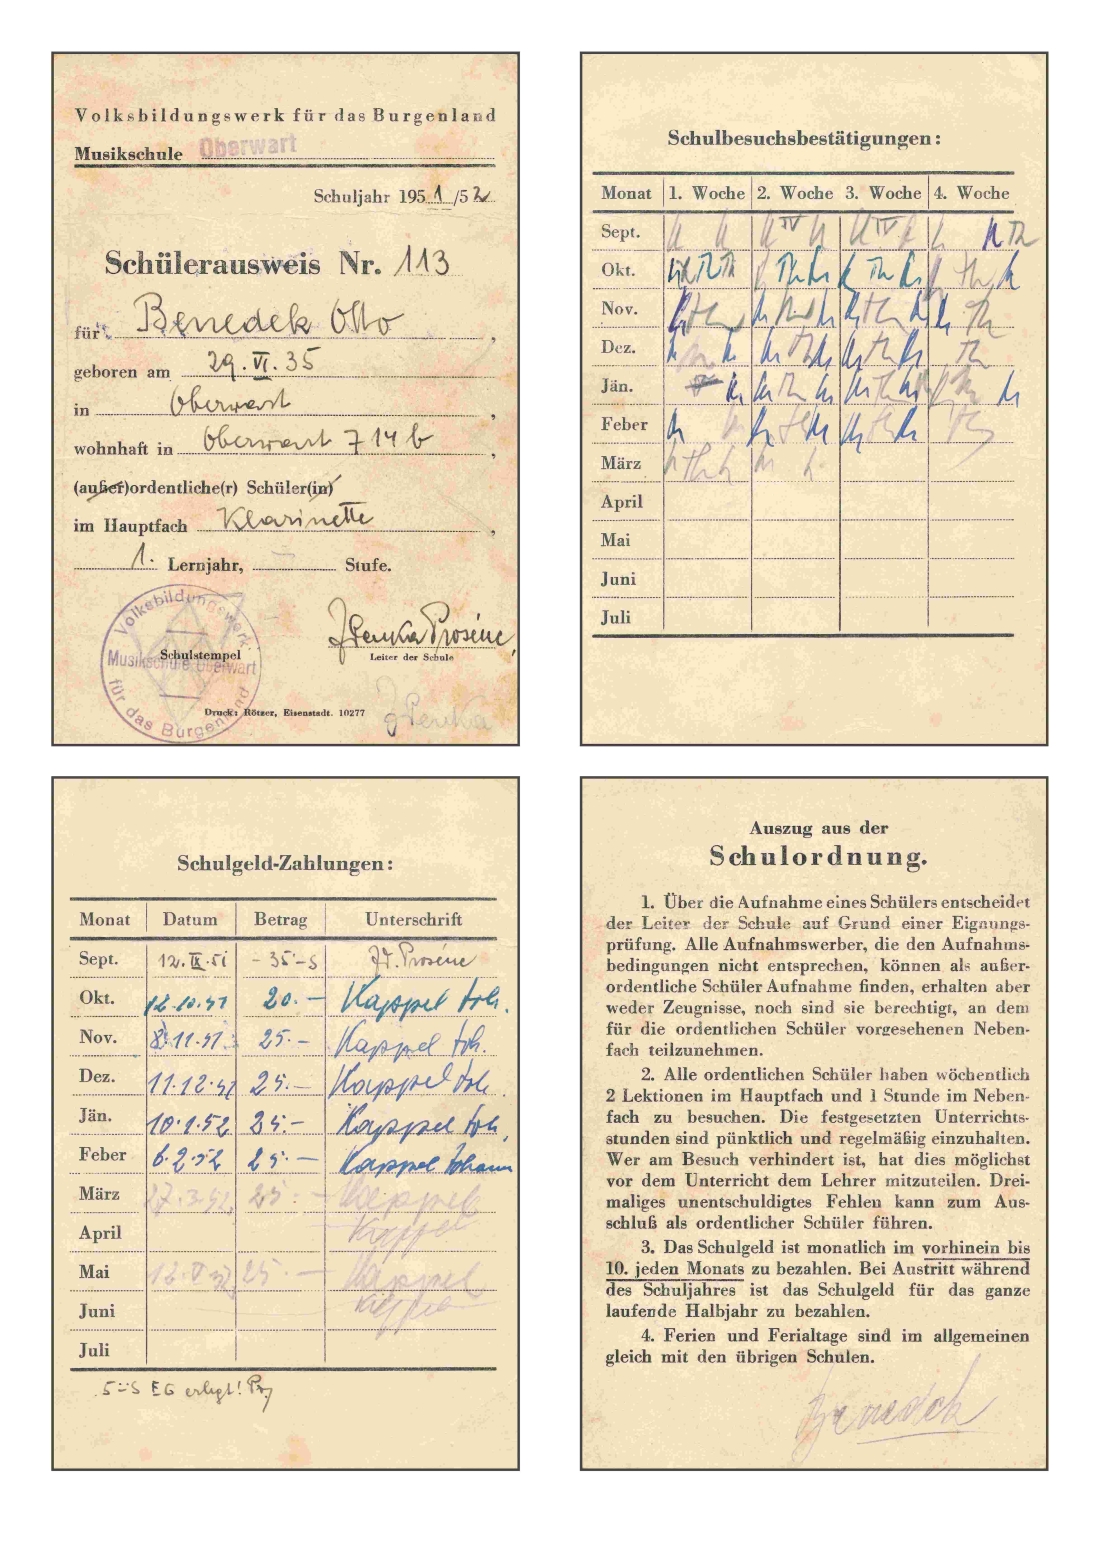 Volksbildungswerk für das Burgenland
Musikschule Oberwart
Schuljahr 1951/52
Schülerausweis Nr. 113
für Benedek Otto,
geboren am 29. VI. 35
in Oberwart,
wohnhaft in Oberwart 714b,
(außer)ordentliche(r) Schüler(in)
im Hauptfach Klarinette,
1. Lernjahr, Stufe.
Volksbildungswerk
Musikschule Oberwart
für das Burgenland
Schulstempel
Leiter der Schule
Druck: Rötzer, Eisenstadt. 10277
Schulbesuchsbestätigungen:
Monat 1. Woche 2. Woche 3. Woche 4. Woche
Sept.
Okt.
Nov.
Dez.
Jän.
Feber
März
April
Mai
Juni
Juli
Schulgeld-Zahlungen:
Monat Datum Betrag Unterschrift
Sept. 12. IX. 51 - 35.-S Prosénc
Okt. 12.10.51 20.— Kappel Joh.
Nov. 8.11.51. 25.- Kappel Joh.
Dez. 11.12.51 25.— Kappel Joh.
Jän. 10.1.52 25.- Kappel Joh.
Feber 6.2.52 25.— Kappel Johann
März 25.— Kappel
April Kappel
Mai 25.— Kappel
Juni Kappel
Juli
EG erlegt!
Auszug aus der
Schulordnung.
1. Über die Aufnahme eines Schülers entscheidet
der Leiter der Schule auf Grund einer Eignungs-
prüfung. Alle Aufnahmswerber, die den Aufnahms-
bedingungen nicht entsprechen, können als außer-
ordentliche Schüler Aufnahme finden, erhalten aber
weder Zeugnisse, noch sind sie berechtigt, an dem
für die ordentlichen Schüler vorgesehenen Neben-
fach teilzunehmen.
2. Alle ordentlichen Schüler haben wöchentlich
2 Lektionen im Hauptfach und 1 Stunde im Neben-
fach zu besuchen. Die festgesetzten Unterrichts-
stunden sind pünktlich und regelmäßig einzuhalten.
Wer am Besuch verhindert ist, hat dies möglichst
vor dem Unterricht dem Lehrer mitzuteilen. Drei-
maliges unentschuldigtes Fehlen kann zum Aus-
schluß als ordentlicher Schüler führen.
3. Das Schulgeld ist monatlich im vorhinein bis
10. jeden Monats zu bezahlen. Bei Austritt während
des Schuljahres ist das Schulgeld für das ganze
laufende Halbjahr zu bezahlen.
4. Ferien und Ferialtage sind im allgemeinen
gleich mit den übrigen Schulen.
Benedek